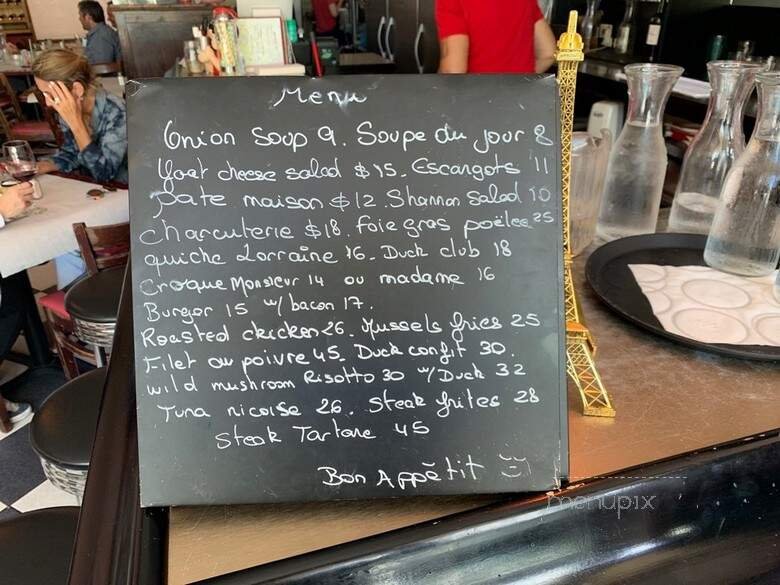 Menu
Onion Soup 9. Soupe du jour 8
Goat cheese salad $15. Escargots 11
Pate maison $12. Shannon Salad 10
Charcuterie $18. foie gras poëlee 25
quiche Lorraine 16. Duck club 18
Croque Monsieur 14 ou madame 16
Burger 15 w/ bacon 17.
Roasted chicken 26. Mussels fries 25
Filet au poivre 45. Duck confit 30.
wild mushroom Risotto 30 w/ Duck 32
Tuna nicoise 26. Steak frites 28
Steak Tartare 45
Bon Appétit
menupix